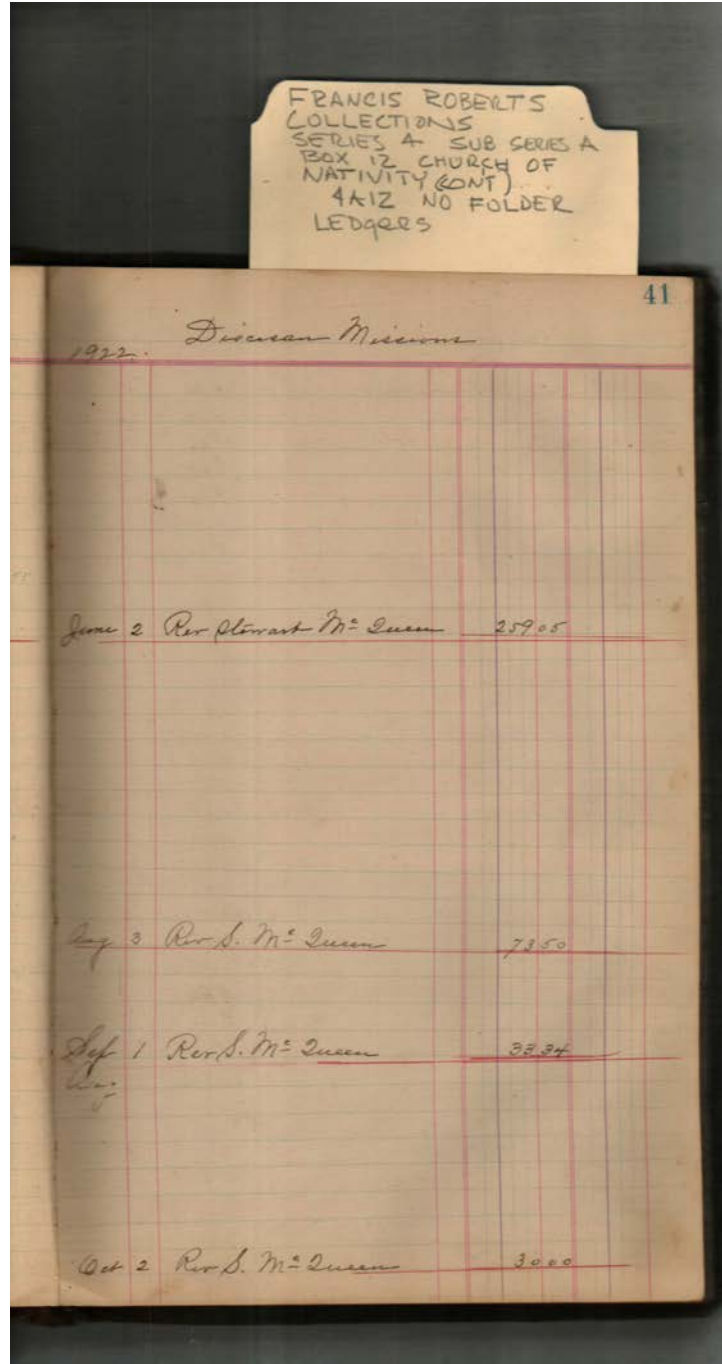 FRANCIS ROBERTS
COLLECTIONS
SERIES 4 SUB SERIES A
BOX 12 CHURCH OF
NATIVITY (CONT)
4A12 NO FOLDER
LEDgERS
41
1922. Diocesan Missions
June 2 Rev Stewart Mc Queen 259 05
Aug 3 Rev S. Mc Queen 73 50
Sep 1 Rev S. Mc Queen 33 34
Aug
Oct 2 Rev S. Mc Queen 30 00